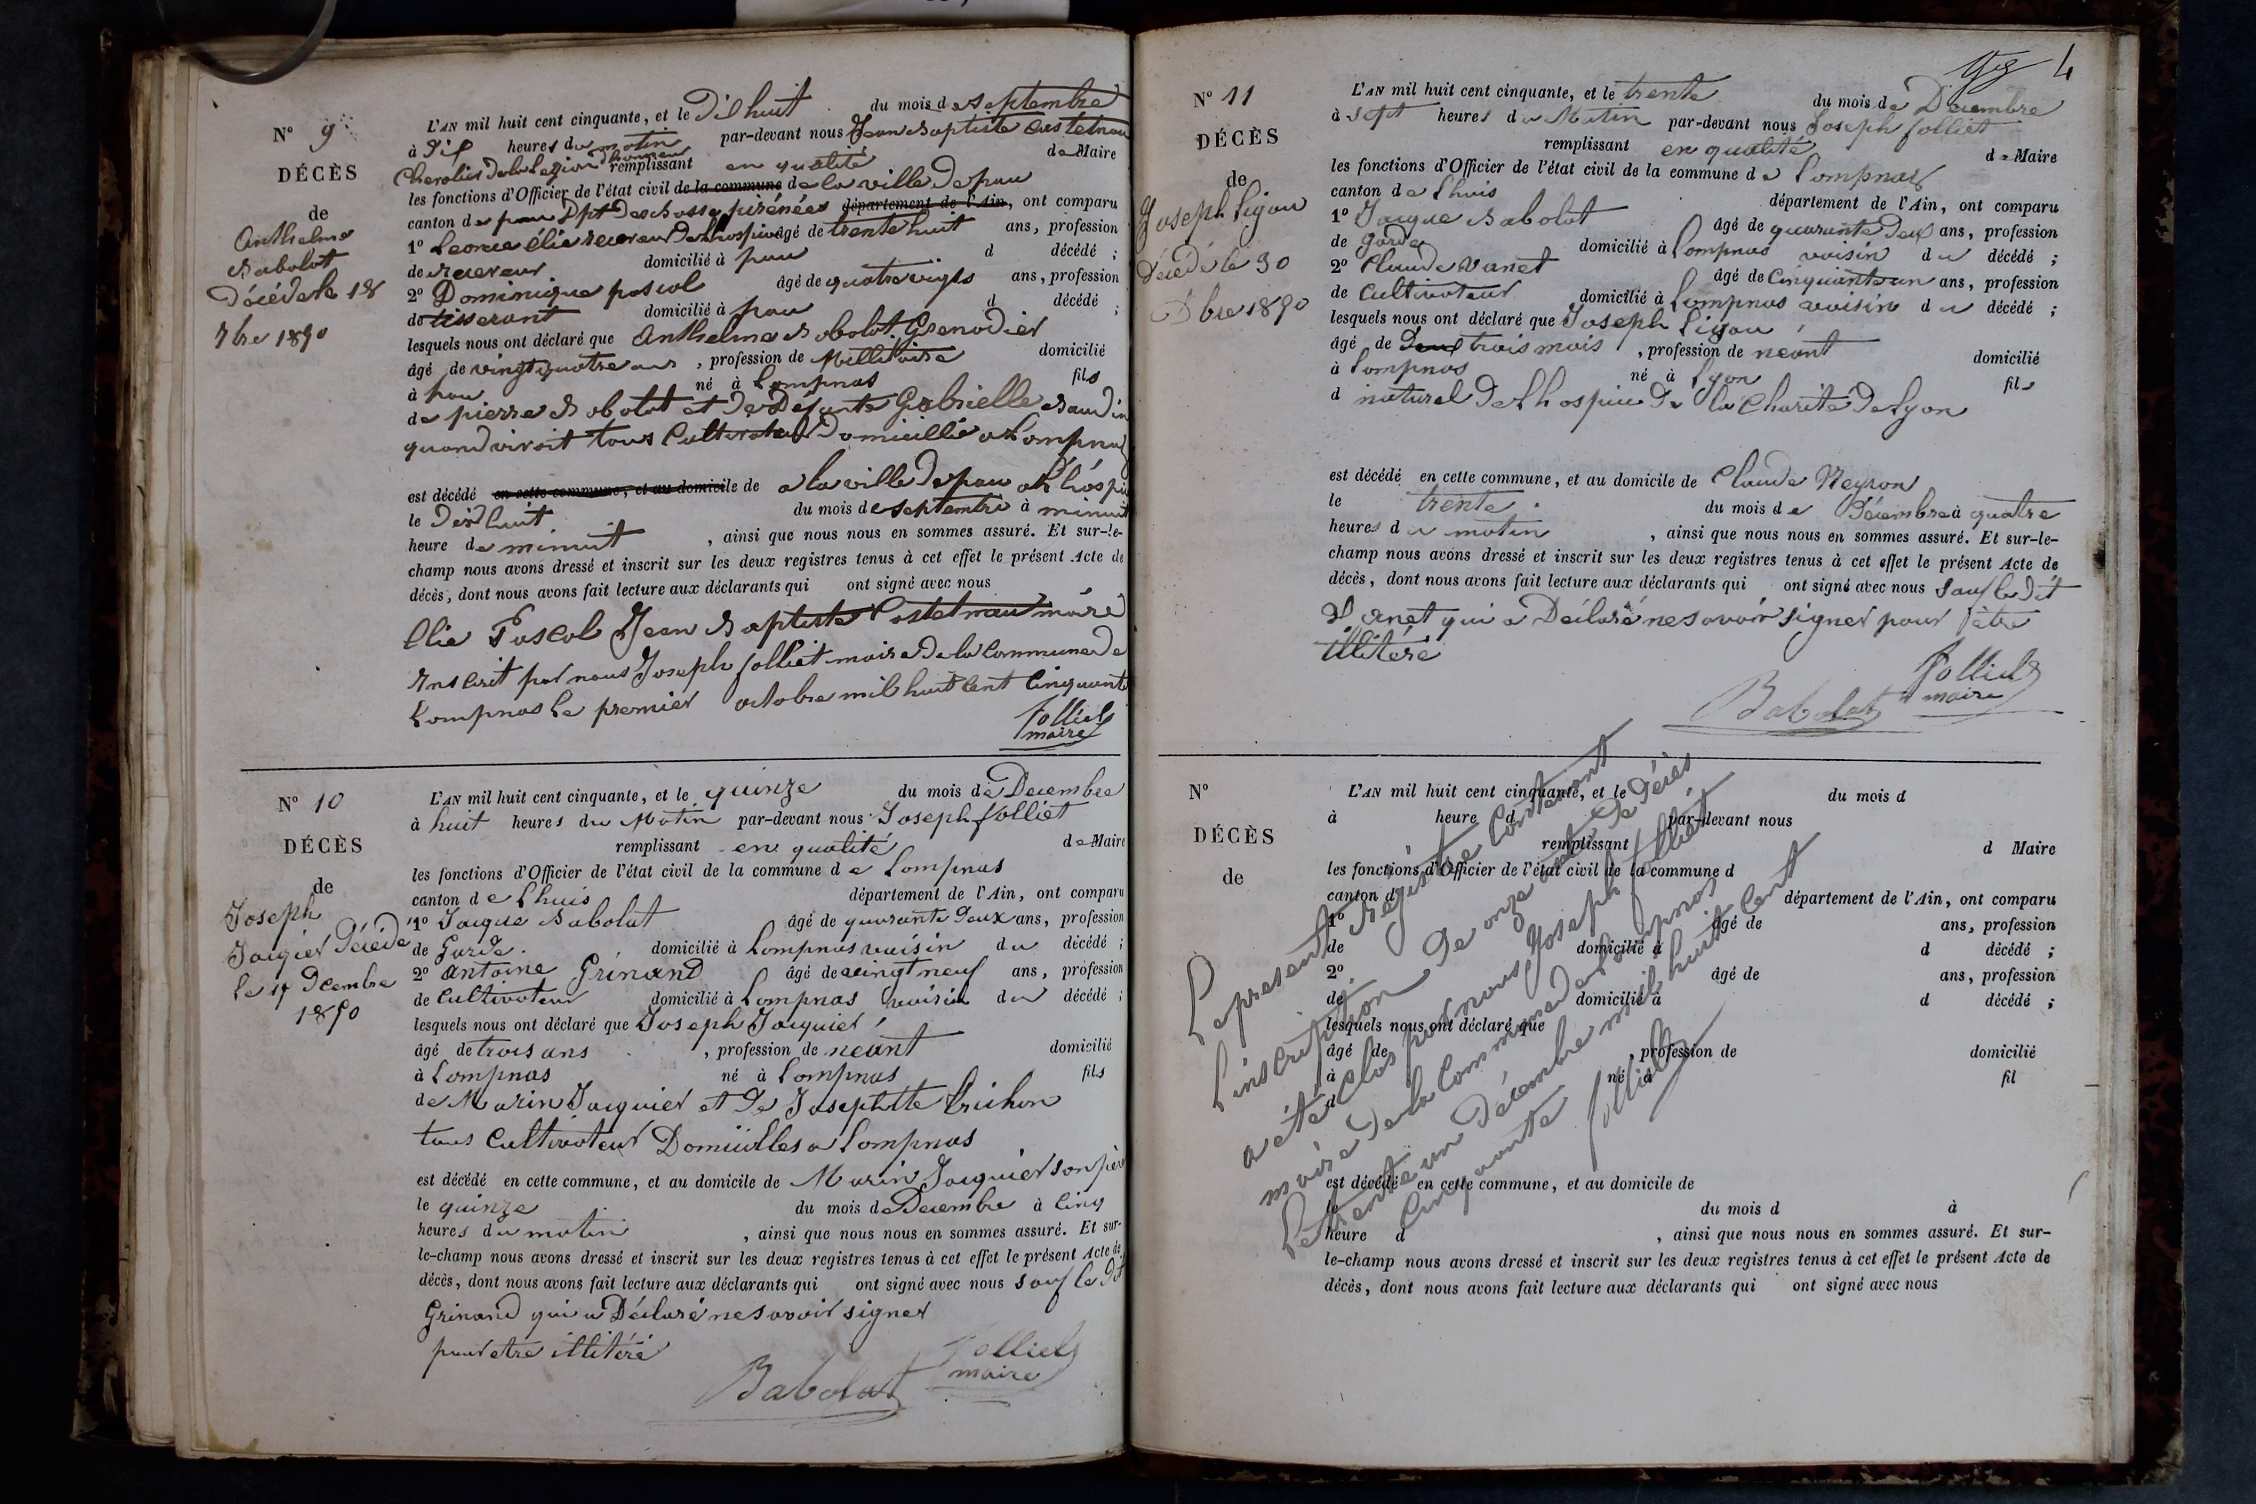 N° 9
DÉCÈS
de
Anthelme
Babolat
Décédé le 18
7bre 1850
L'AN mil huit cent cinquante, et le Dix huit du mois de septembre
à Dix heures du matin par-devant nous Jean Baptiste Castetnau
Chevalier de la Legion d'honneur remplissant en qualité de Maire
les fonctions d'Officier de l'état civil de la commune de la ville De pau
canton de pau Dpt Des Basse pirénées département de l'Ain, ont comparu
1° Leonce élie receveur De Lhospice âgé de trente huit ans, profession
de receveur domicilié à pau d décédé ;
2° Dominique pascal âgé de quatre vigts ans, profession
de tisserant domicilié à pau d décédé ;
lesquels nous ont déclaré que Anthelme Babolat Grenadier
âgé de vingt quatre ans , profession de Millitaire domicilié
à pau né à Lompnas fils
de pierre Babolat et De Défunte Gabrielle Baudin
quand vivait tous Cultivateur Domicillié a Lompnas
est décédé en cette commune, et au domicile de a la ville De pau a L'hóspice
le Dix huit du mois de septembre à minuit
heure de minuit , ainsi que nous nous en sommes assuré. Et sur-le-
champ nous avons dressé et inscrit sur les deux registres tenus à cet effet le présent Acte de
décès, dont nous avons fait lecture aux déclarants qui ont signé avec nous
Elie Pascal Jean Baptiste Castetnau maire
Inscrit par nous Joseph folliet maire De la Commune De
Lompnas Le premier octobre mil huit Cent Cinquante
folliet
maire
N° 10
DÉCÈS
de
Joseph
Jaquier Décédé
Le 15 Dcembre
1850
L'AN mil huit cent cinquante, et le quinze du mois de Decembre
à huit heures du Matin par-devant nous Joseph folliet
remplissant en qualité de Maire
les fonctions d'Officier de l'état civil de la commune de Lompnas
canton de Lhuis département de l'Ain, ont comparu
1° Jaque Babolat âgé de quarante Deux ans, profession
de Garde domicilié à Lompnas voisin du décédé ;
2° Antoine Grinand âgé de vingt neuf ans, profession
de Cultivateur domicilié à Lompnas voisin du décédé ;
lesquels nous ont déclaré que Joseph Jaquier
âgé de trois ans , profession de neant domicilié
à Lompnas né à Lompnas fils
de Marin Jaquier et De Josephtte Trichon
tous Cultivateur Domicilles a Lompnas
est décédé en cette commune, et au domicile de Marin Jaquier son père
le quinze du mois de Decembre à Cinq
heures du matin , ainsi que nous nous en sommes assuré. Et sur-
le-champ nous avons dressé et inscrit sur les deux registres tenus à cet effet le présent Acte de
décès, dont nous avons fait lecture aux déclarants qui ont signé avec nous sauf le Dit
Grinand qui a Déclaré ne savoir signer
pour etre illitéré
Babolat folliet
maire
4
N° 11
DÉCÈS
de
Joseph Ligou
Décédé le 30
Dbre 1850
L'AN mil huit cent cinquante, et le trente du mois de Decembre
à sept heures du Matin par-devant nous Joseph folliet
remplissant en qualité de Maire
les fonctions d'Officier de l'état civil de la commune de Lompnas
canton de Lhuis département de l'Ain, ont comparu
1° Jaque Babolat âgé de quarante Deux ans, profession
de Garde domicilié à Lompnas voisin du décédé ;
2° Claude Vanet âgé de Cinquante un ans, profession
de Cultivateur domicilié à Lompnas voisin du décédé ;
lesquels nous ont déclaré que Joseph Ligou
âgé de Deux trois mois , profession de neant domicilié
à Lompnas né à Lyon fils
d naturel De Lhospice De la Charité De Lyon
est décédé en cette commune, et au domicile de Claude Neyron
le trente du mois de Décembre à quatre
heures du matin , ainsi que nous nous en sommes assuré. Et sur-le-
champ nous avons dressé et inscrit sur les deux registres tenus à cet effet le présent Acte de
décès, dont nous avons fait lecture aux déclarants qui ont signé avec nous sauf le Dit
Vanet qui a Déclaré ne savoir signer pour être
illitéré
Babolat folliet
maire
N°
DÉCÈS
de
L'AN mil huit cent cinquante, et le du mois d
à heure d par-devant nous
remplissant d Maire
les fonctions d'Officier de l'état civil de la commune d
canton d département de l'Ain, ont comparu
1° âgé de ans, profession
de domicilié à d décédé ;
2° âgé de ans, profession
de domicilié à d décédé ;
lesquels nous ont déclaré que
âgé de , profession de domicilié
à né à fil
d
est décédé en cette commune, et au domicile de
le du mois d à
heure d , ainsi que nous nous en sommes assuré. Et sur-
le-champ nous avons dressé et inscrit sur les deux registres tenus à cet effet le présent Acte de
décès, dont nous avons fait lecture aux déclarants qui ont signé avec nous
Le present Registre Contenant
L'inscription De onze acte De Décès
a été Clos par nous Joseph folliet
maire De la Commune De Lompnas
Le trente un Décembre mil huit Cent
Cinquante folliet